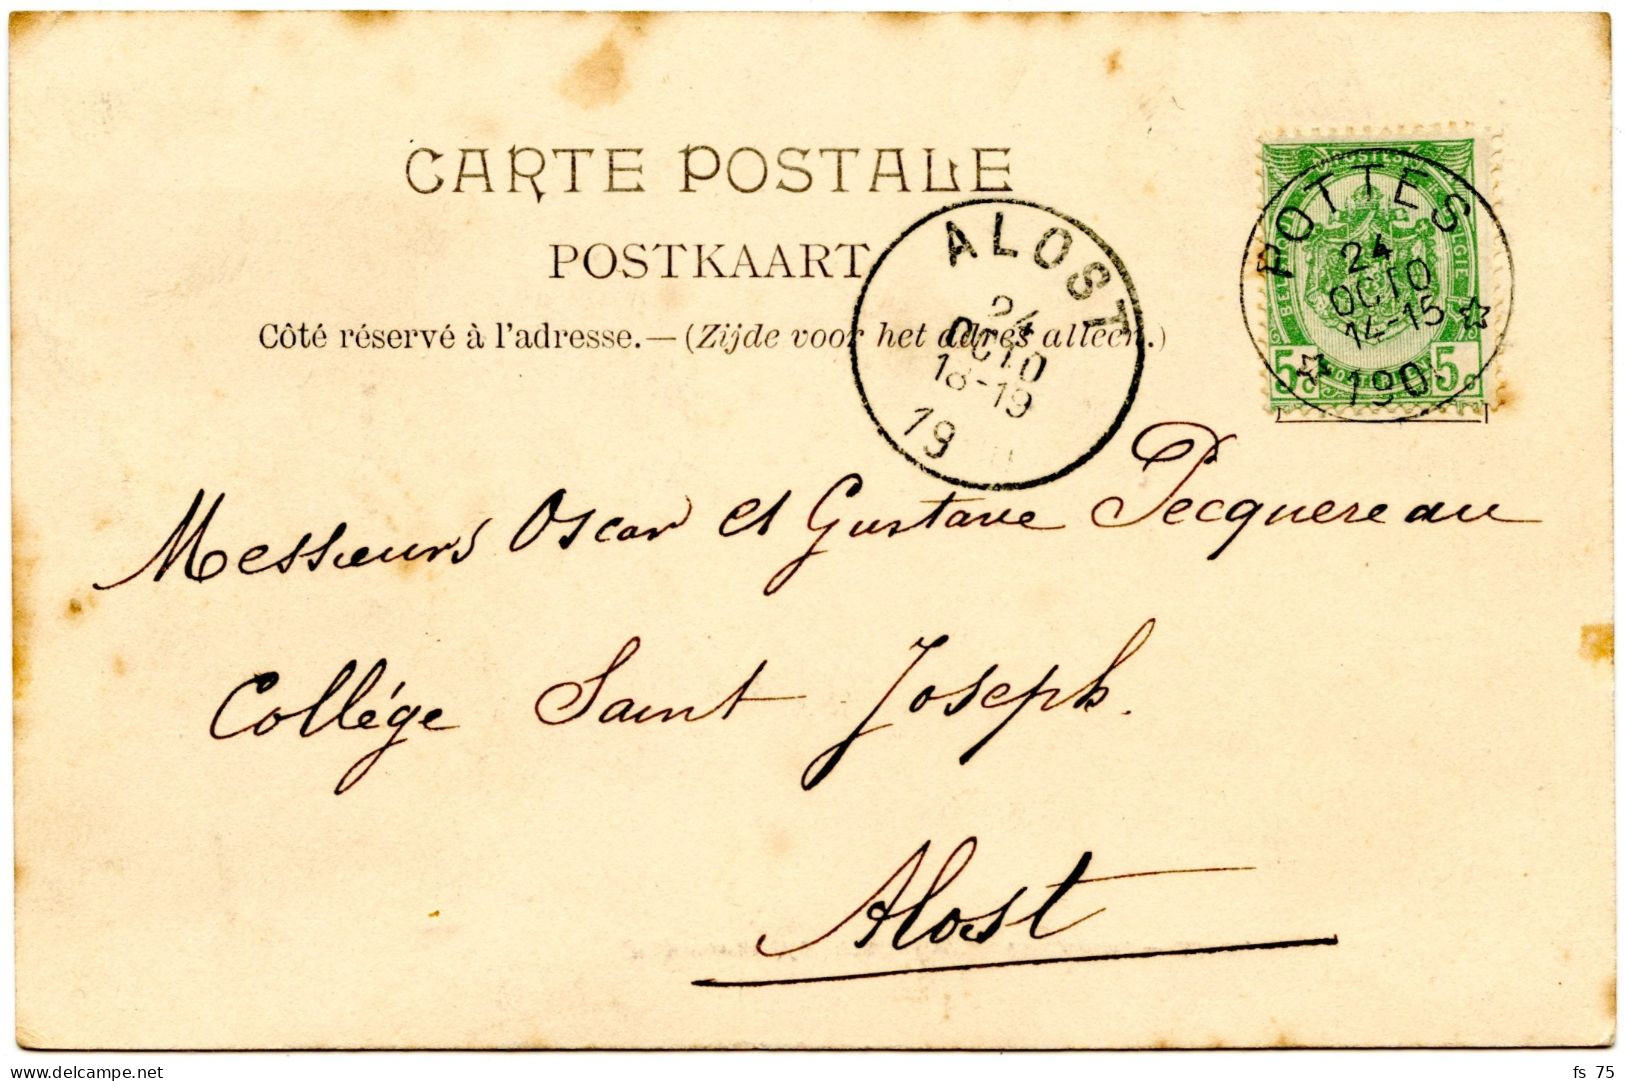 CARTE POSTALE
POSTKAART
Côté réservé à l'adresse.—(Zijde voor het adres alleen.)
ALOST
24
OCTO
18-19
19
POTTES
24
OCTO
14-15
190
5c 5c
Messieurs Oscar et Gustave Pecquereau
Collége Saint Joseph.
Alost
delcampe.net
fs_75